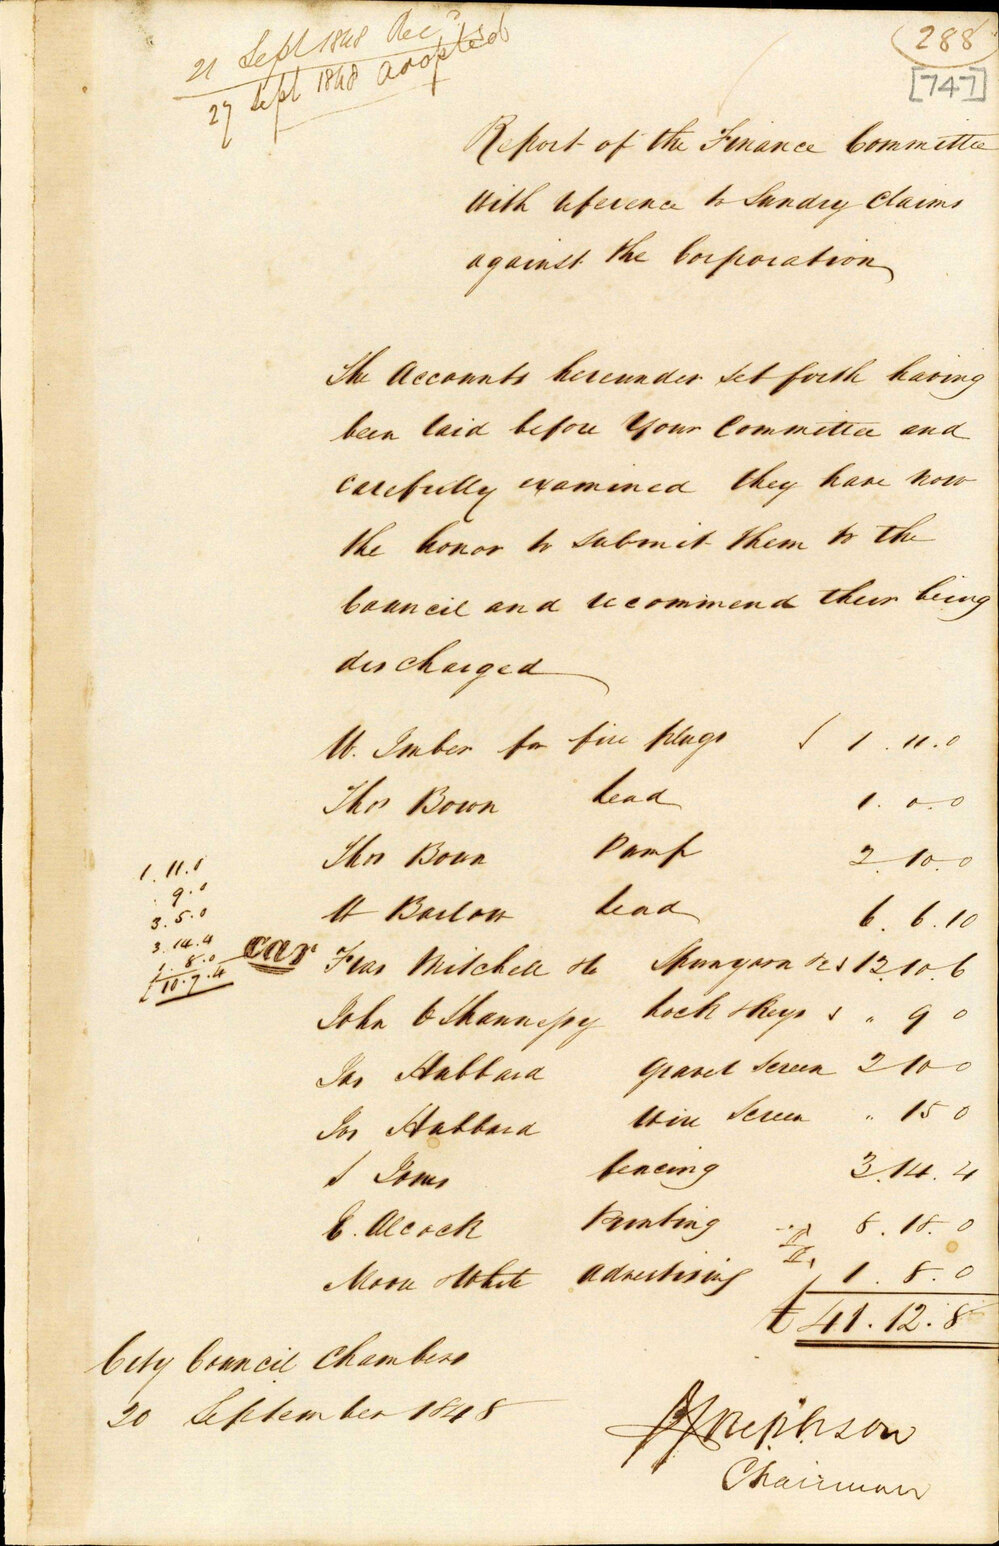 21 Sept 1848 Rec'd
27 Sept 1848 adopted
288
[747]
Report of the Finance Committee
with reference to Sundry Claims
against the Corporation
The Accounts hereunder set forth having
been laid before Your Committee and
carefully examined they have now
the honor to submit them to the
Council and recommend their being
discharged
W. Imber for fire plugs £ 1. 11. 0
Thos Bown Lead 1. 0. 0
Thos Bown Pump 2. 10. 0
W Barlow Lead 6. 6. 10
Fras Mitchell & Co Spunyarn &c 12. 10. 6
John O'Shannessy Lock & Keys " 9 0
Jas Hubbard Gravel Screen 2 10 0
Jas Hubbard Wire Screen " 15 0
S Jones fencing 3. 14. 4
E. Alcock Printing 8. 18. 0
Moore & White Advertising 1. 8. 0
£ 41. 12. 8
1. 11. 0
. 9. 0
3. 5. 0
3. 14. 4
1. 8. 0
£ 10. 7. 4
City Council Chambers
20 September 1848
Chairman